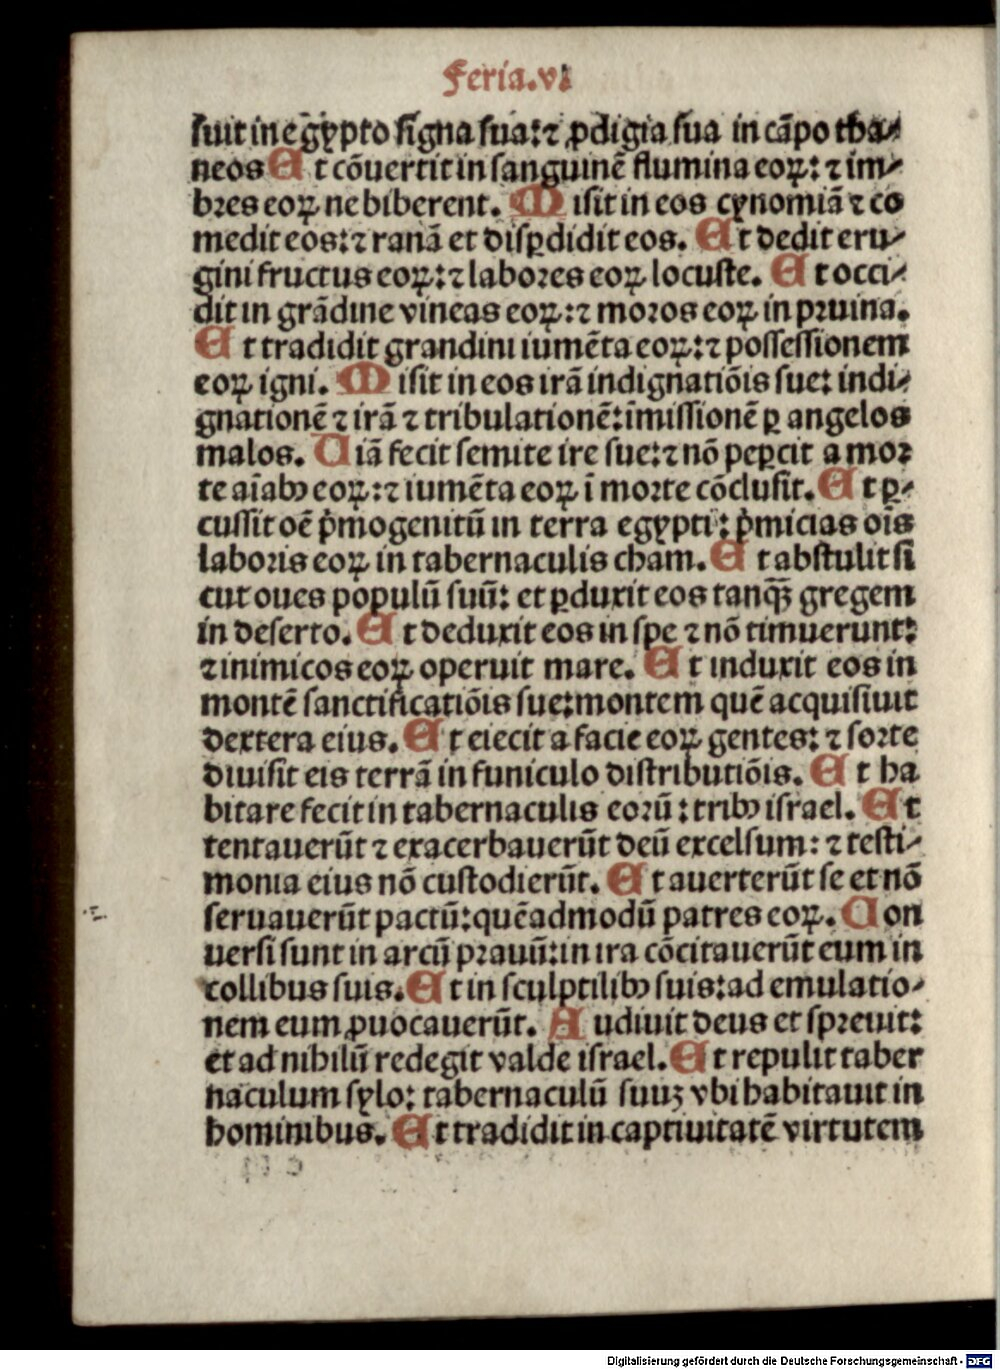 Feria.v.
ſuit in egẏpto ſigna ſua:⁊ ꝓdigia ſua in cãpo tha⸗
neos Et cõuertit in ſanguinẽ flumina eoꝝ: ⁊ im⸗
bꝛes eoꝝ ne biberent. Miſit in eos cynomiã ⁊ co
medit eos:⁊ ranã et diſꝑdidit eos. Et dedit eru⸗
gini fructus eoꝝ:⁊ laboꝛes eoꝝ locuſte. Et occi⸗
dit in grãdine vineas eoꝝ:⁊ moꝛos eoꝝ in pꝛuina.
Et tradidit grandini iumẽta eoꝝ:⁊ poſſeſſionem
eoꝝ igni. Miſit in eos irã indignatiõis ſue: indi⸗
gnationẽ ⁊ irã ⁊ tribulationẽ:ĩmiſſionẽ ꝑ angelos
malos. Uiã fecit ſemite ire ſue:⁊ nõ peꝑcit a moꝛ
te aĩabꝰ eoꝝ:⁊ iumẽta eoꝝ ĩ moꝛte cõcluſit. Et ꝑ⸗
cuſſit oẽ p̓mogenitũ in terra egẏpti: p̓micias oĩs
laboꝛis eoꝝ in tabernaculis cham. Et abſtulit ſi
cut oues populũ ſuũ: et ꝑduxit eos tanꝙ̃ gregem
in deſerto. Et deduxit eos in ſpe ⁊ nõ timuerunt:
⁊ inimicos eoꝝ operuit mare. Et induxit eos in
montẽ ſanctificatiõis ſue:montem quẽ acquiſiuit
dextera eius. Et eiecit a facie eoꝝ gentes: ⁊ ſoꝛte
diuiſit eis terrã in funiculo diſtributiõis. Et ha
bitare fecit in tabernaculis eoꝛũ: tribꝰ iſrael. Et
tentauerũt ⁊ exacerbauerũt deũ excelſum: ⁊ teſti⸗
monia eius nõ cuſtodierũt. Et auerterũt ſe et nõ
ſeruauerũt pactũ:quẽadmodũ patres eoꝝ. Con
uerſi ſunt in arcũ pꝛauũ:in ira cõcitauerũt eum in
collibus ſuis. Et in ſculptilibꝰ ſuis:ad emulatio⸗
nem eum ꝓuocauerũt. Audiuit deus et ſpꝛeuit:
et ad nihilũ redegit valde iſrael. Et repulit taber
naculum ſylo: tabernaculũ ſuuꝫ vbi habitauit in
hominibus. Et tradidit in captiuitatẽ virtutem
Digitalisierung gefördert durch die Deutsche Forschungsgemeinschaft - DFG